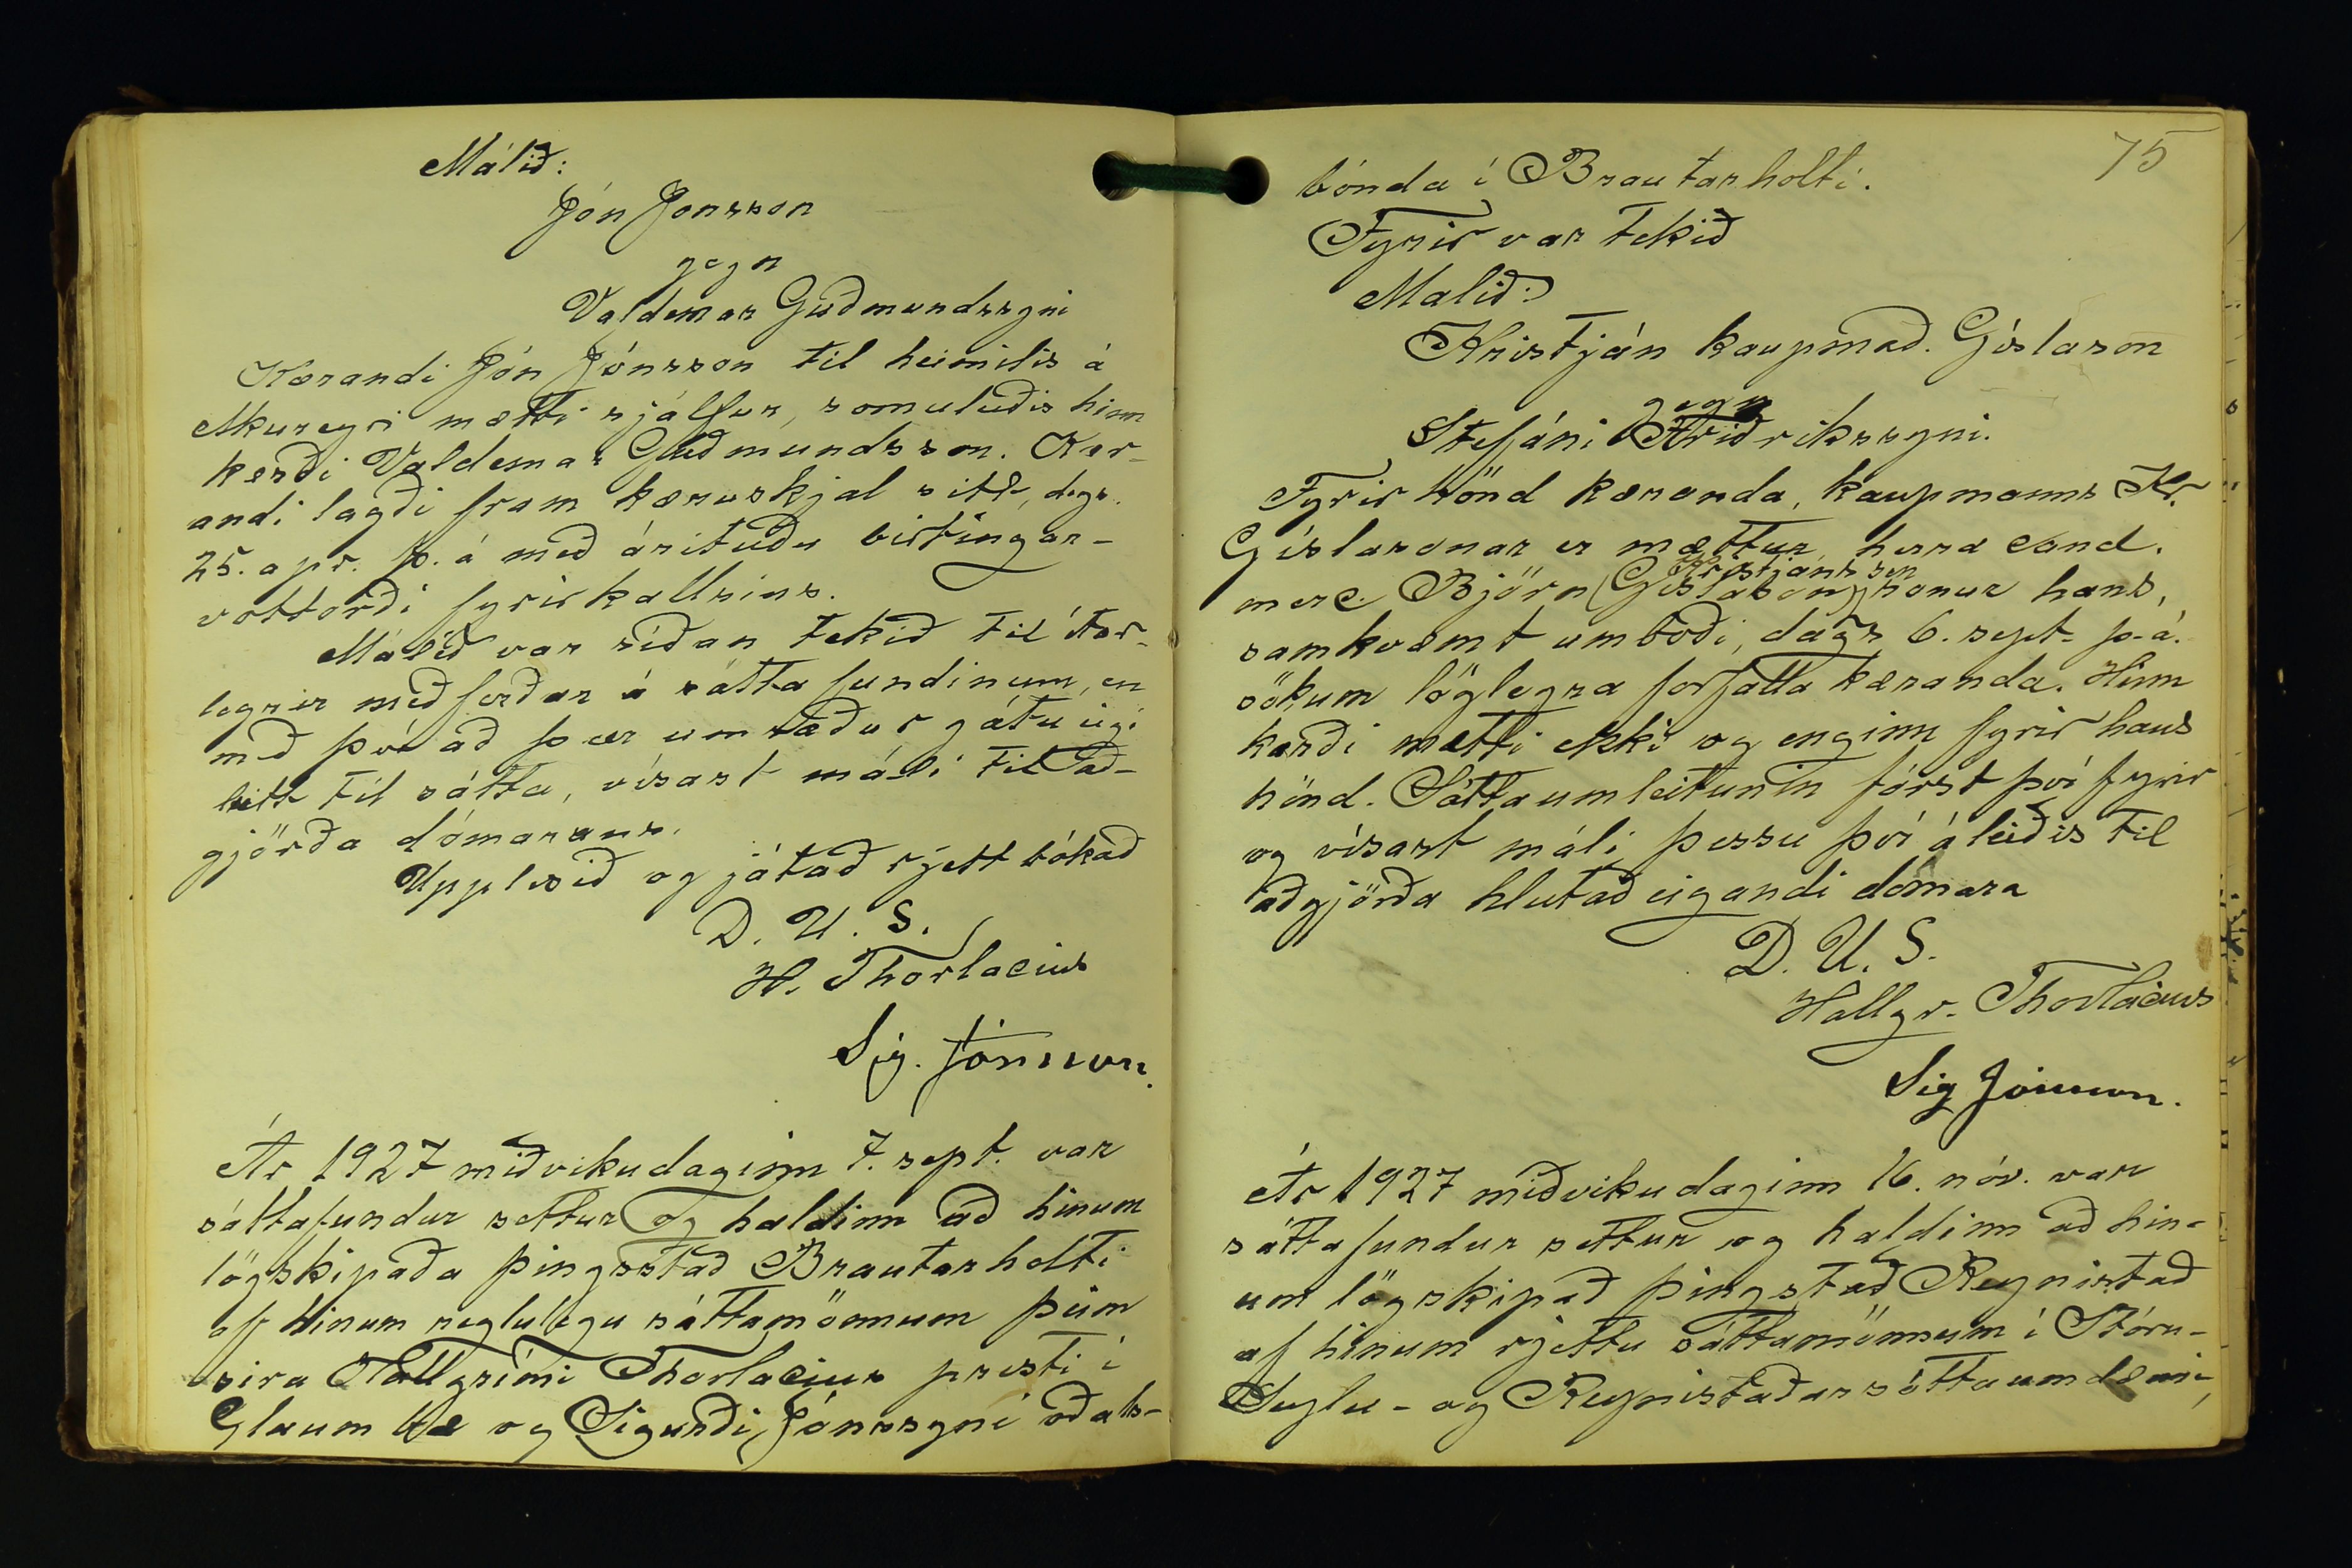 Málið:
Jón Jonsson
gegn
Valdemar Guðmundssyni
Kærandi Jón Jónsson til heimilis á
Akureyri mætti sjálfur, sömuleiðis hinn
kærði Valdemar Guðmundsson. Kær-
andi lagði fram kæruskjal sitt, dags.
25. apr. þ. á með árituðu birtingar-
vottorði fyrirkallsins.
Málið var síðan tekið til ítar-
legrar meðferðar á sáttafundinum, en
með því að þær umræður gátu eigi
leitt til sátta, vísast máli til að-
gjörða dómarans.
Upplesið og játað rjett bókað
D. U. S.
H. Thorlacius
Sig. Jónsson.
Ár 1927 miðvikudaginn 7. sept. var
sáttafundur settur og haldinn að hinum
lögskipaða þingstað Brautarholti
af hinum reglulegu sáttamönnum þeim
sira Hallgrími Thorlacius presti í
Glaumbæ og Sigurði Jónssyni óðals-
75
bónda í Brautarholti.
Fyrir var tekið
Malið:
Kristján kaupmað. Gíslason
gegn
Stefáni Friðrikssyni.
Fyrir hönd kæranda, kaupmanns Kr.
Gíslasonar er mættur, herra cand.
Kristjánsson
merc. Björn (Gíslason) sonur hans,
samkvæmt umboði, dags 6. sept. þ. á.
sökum löglegra forfalla kæranda. Hinn
kærði mætti ekki og enginn fyrir hans
hönd. Sáttaumleitunin fórst því fyrir
og vísast máli þessu því áleiðis til
aðgjörða hlutaðeigandi dómara
D. U. S.
Hallgr. Thorlacius
Sig Jónsson.
Ár 1927 miðvikudaginn 16. nóv. var
sáttafundur settur og haldinn að hin-
um lögskipað þingstað Reynistað
af hinum rjettu sáttamönnum í Stóru-
Seylu- og Reynistaðarsáttaumdæmi,